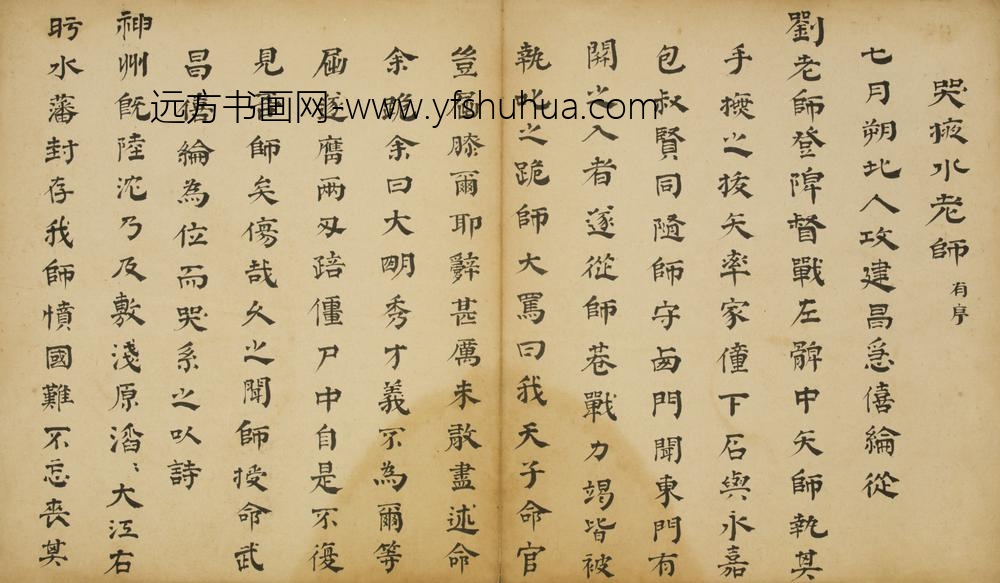 哭掖水老師 有序
七月朔北人攻建昌急僖綸從
劉老師登陴督戰左髀中矢師執其
手撫之拔矢率家僮下石與永嘉
包叔賢同隨師守西門聞東門有
開以入者遂從師巷戰力竭皆被
執叱之跪師大罵曰我天子命官
豈屈膝爾耶辭甚厲未敢盡述命
余跪余曰大明秀才義不為爾等
屈遂膺兩刃踣僵尸中自是不復
見吾師矣傷哉久之聞師授命武
昌僖綸為位而哭系之以詩
神州既陸沈乃及敷淺原滔〻大江右
盱水藩封存我師憤國難不忘喪其
远方书画网-www.yfshuhua.com